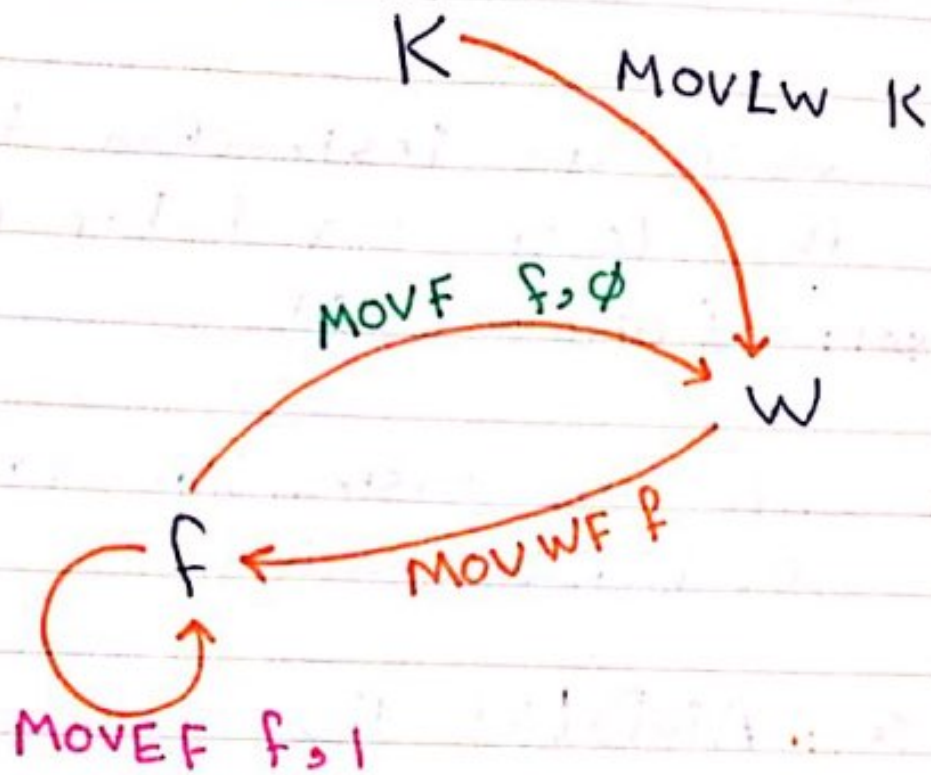 K
MOVLW K
MOVF f,φ
W
f
MOVWF f
MOVEF f,1